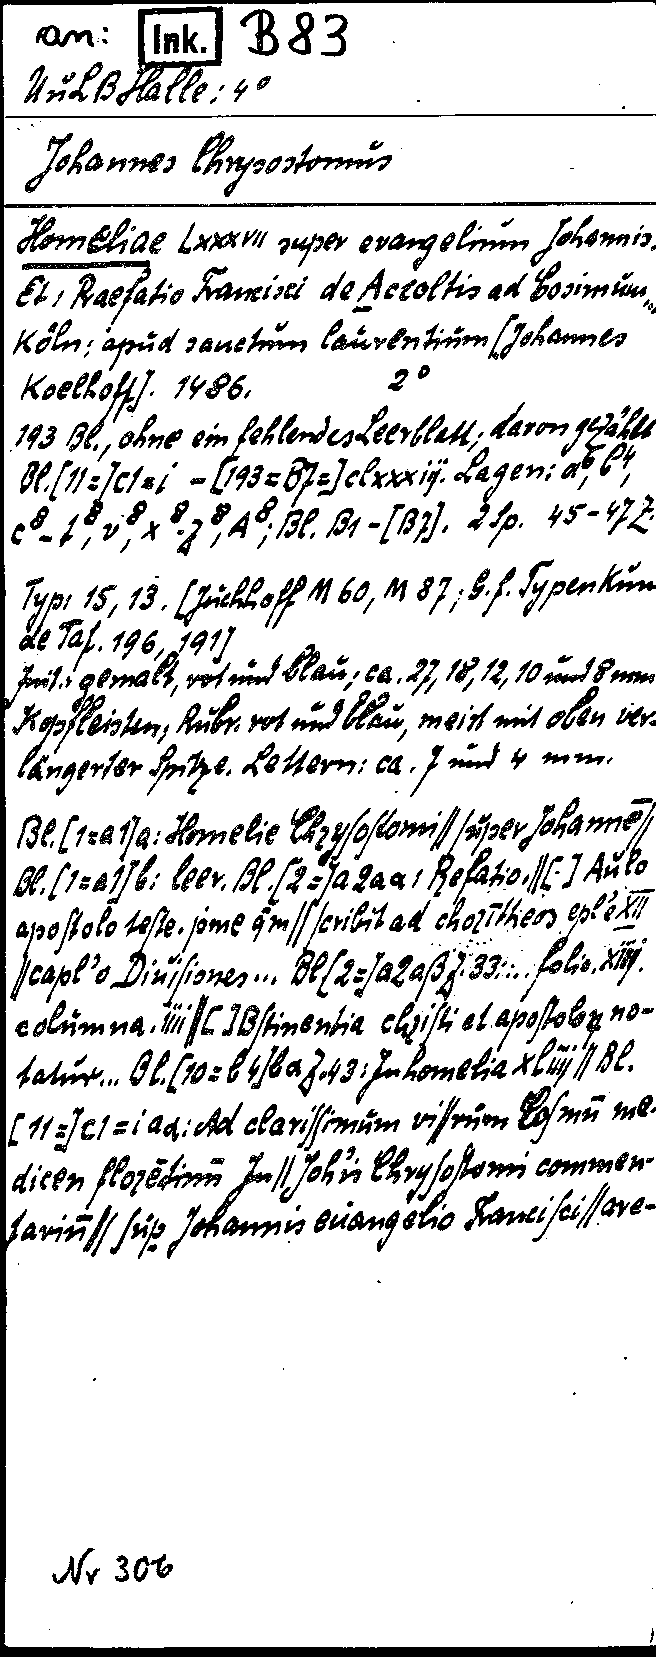 an: Ink. B 83
UuLB Halle: 4°
Johannes Chrysostomus
Homeliae LXXXVII super evangelium Johannis.
Et: Praefatio Francisci de Accoltis ad Cosimum
Köln: apud sanctum laurentium [Johannes
Koelhoff]. 1486. 2°
193 Bl., ohne ein fehlendes Leerblatt; davon gezählt
Bl. [11=]c1=i - [193=B7=]clxxxiij. Lagen: a⁶, b⁴,
c⁸-t⁸, v⁸, x⁸-z⁸, A⁸; Bl. B1-[B7]. 2 Sp. 45-47 Z.
Typ: 15, 13. [Juchhoff M 60, M 87; G.f. Typenkun
de Taf. 196, 191]
Init.: gemalt, rot und blau; ca. 27, 18, 12, 10 und 8 mm
Kopfleisten; Rubr. rot und blau, meist mit oben ver-
längerter Spitze. Lettern: ca. 7 und 4 mm.
Bl. [1=a1]a: Homelie Chrysostomi// super Johannē//
Bl. [1=a1]b: leer. Bl. [2=]a2aα: Prefatio.//[.] Aulo
apostolo teste. ad epl'e XII
//capl'o Diuisiones... Bl [2=]a2aβ Z. 33:... folio. xiij.
columna. iiij//[ ]Bstinentia christi et apostoloꝝ no-
tatur... Bl. [10=b4]bα Z. 43: In homelia xliiij// Bl.
[11=]c1=i aα: Ad clarissimum vi//rum Cosmū me-
dicen florētinū In// Joh'is Chrysostomi commen-
tariū// sup Johannis euangelio Francisci// are-
Nr 306